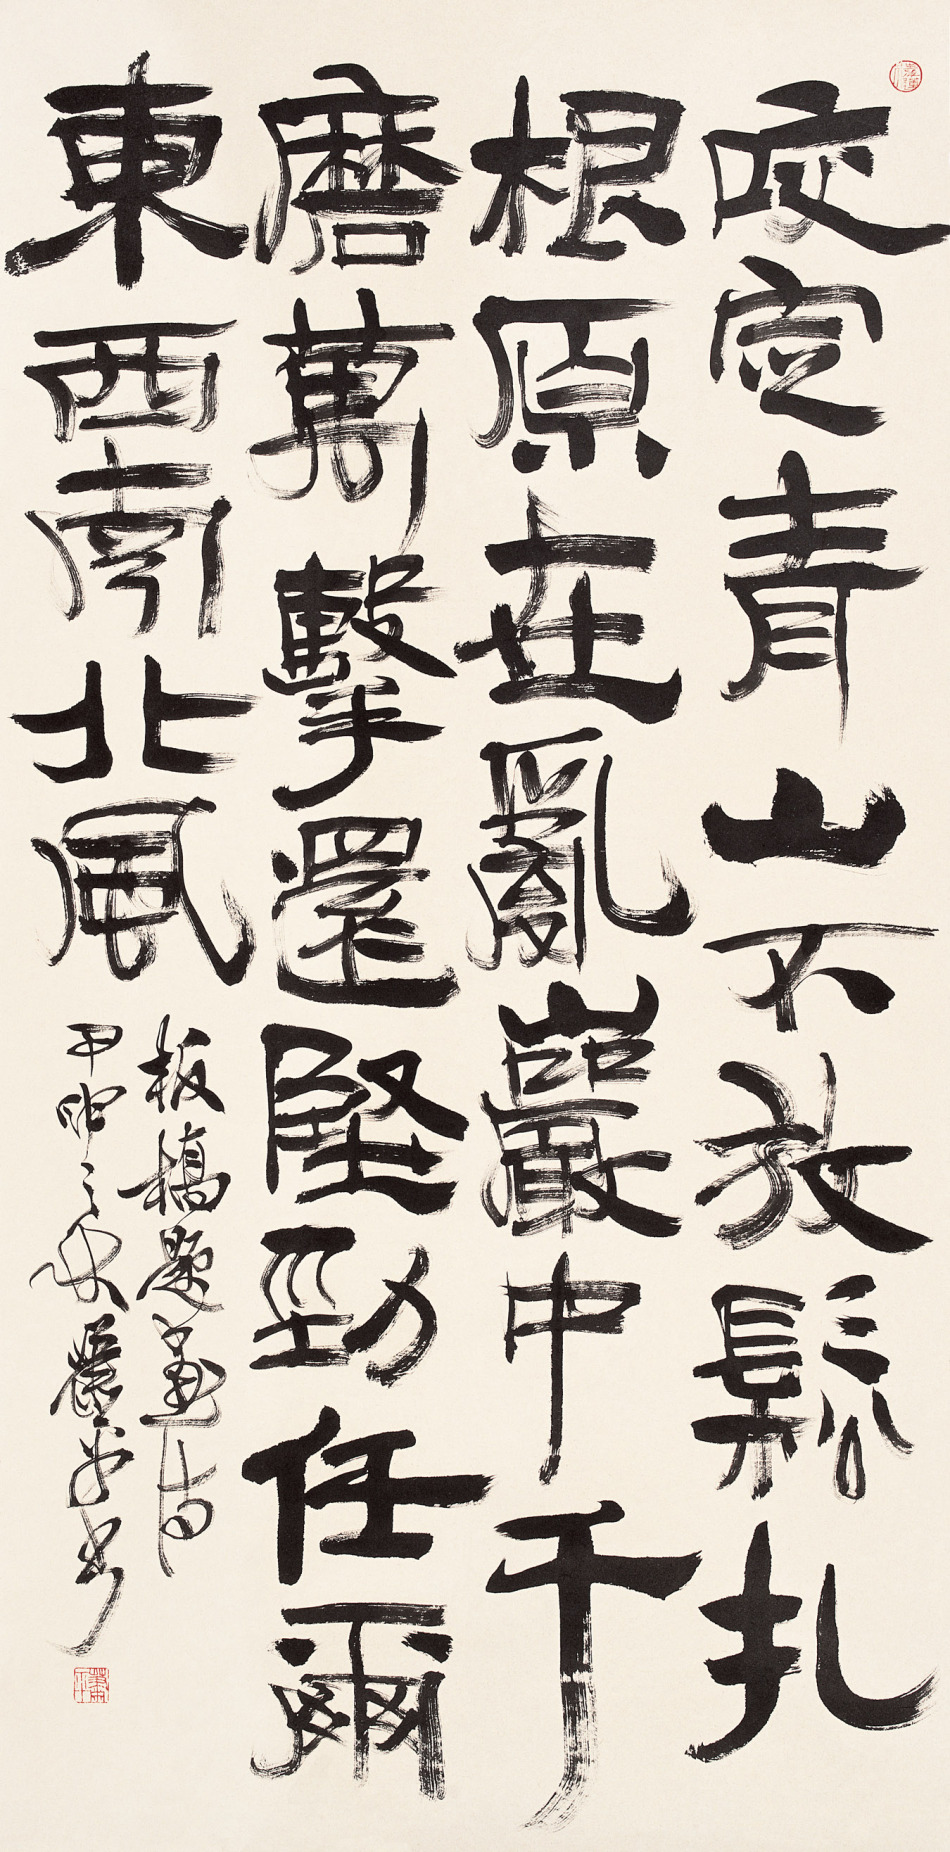 咬定青山不放鬆扎
根原在亂巖中千
磨萬擊還堅勁任爾
東西南北風
板橋題畫詩
甲申之秋蕭平書